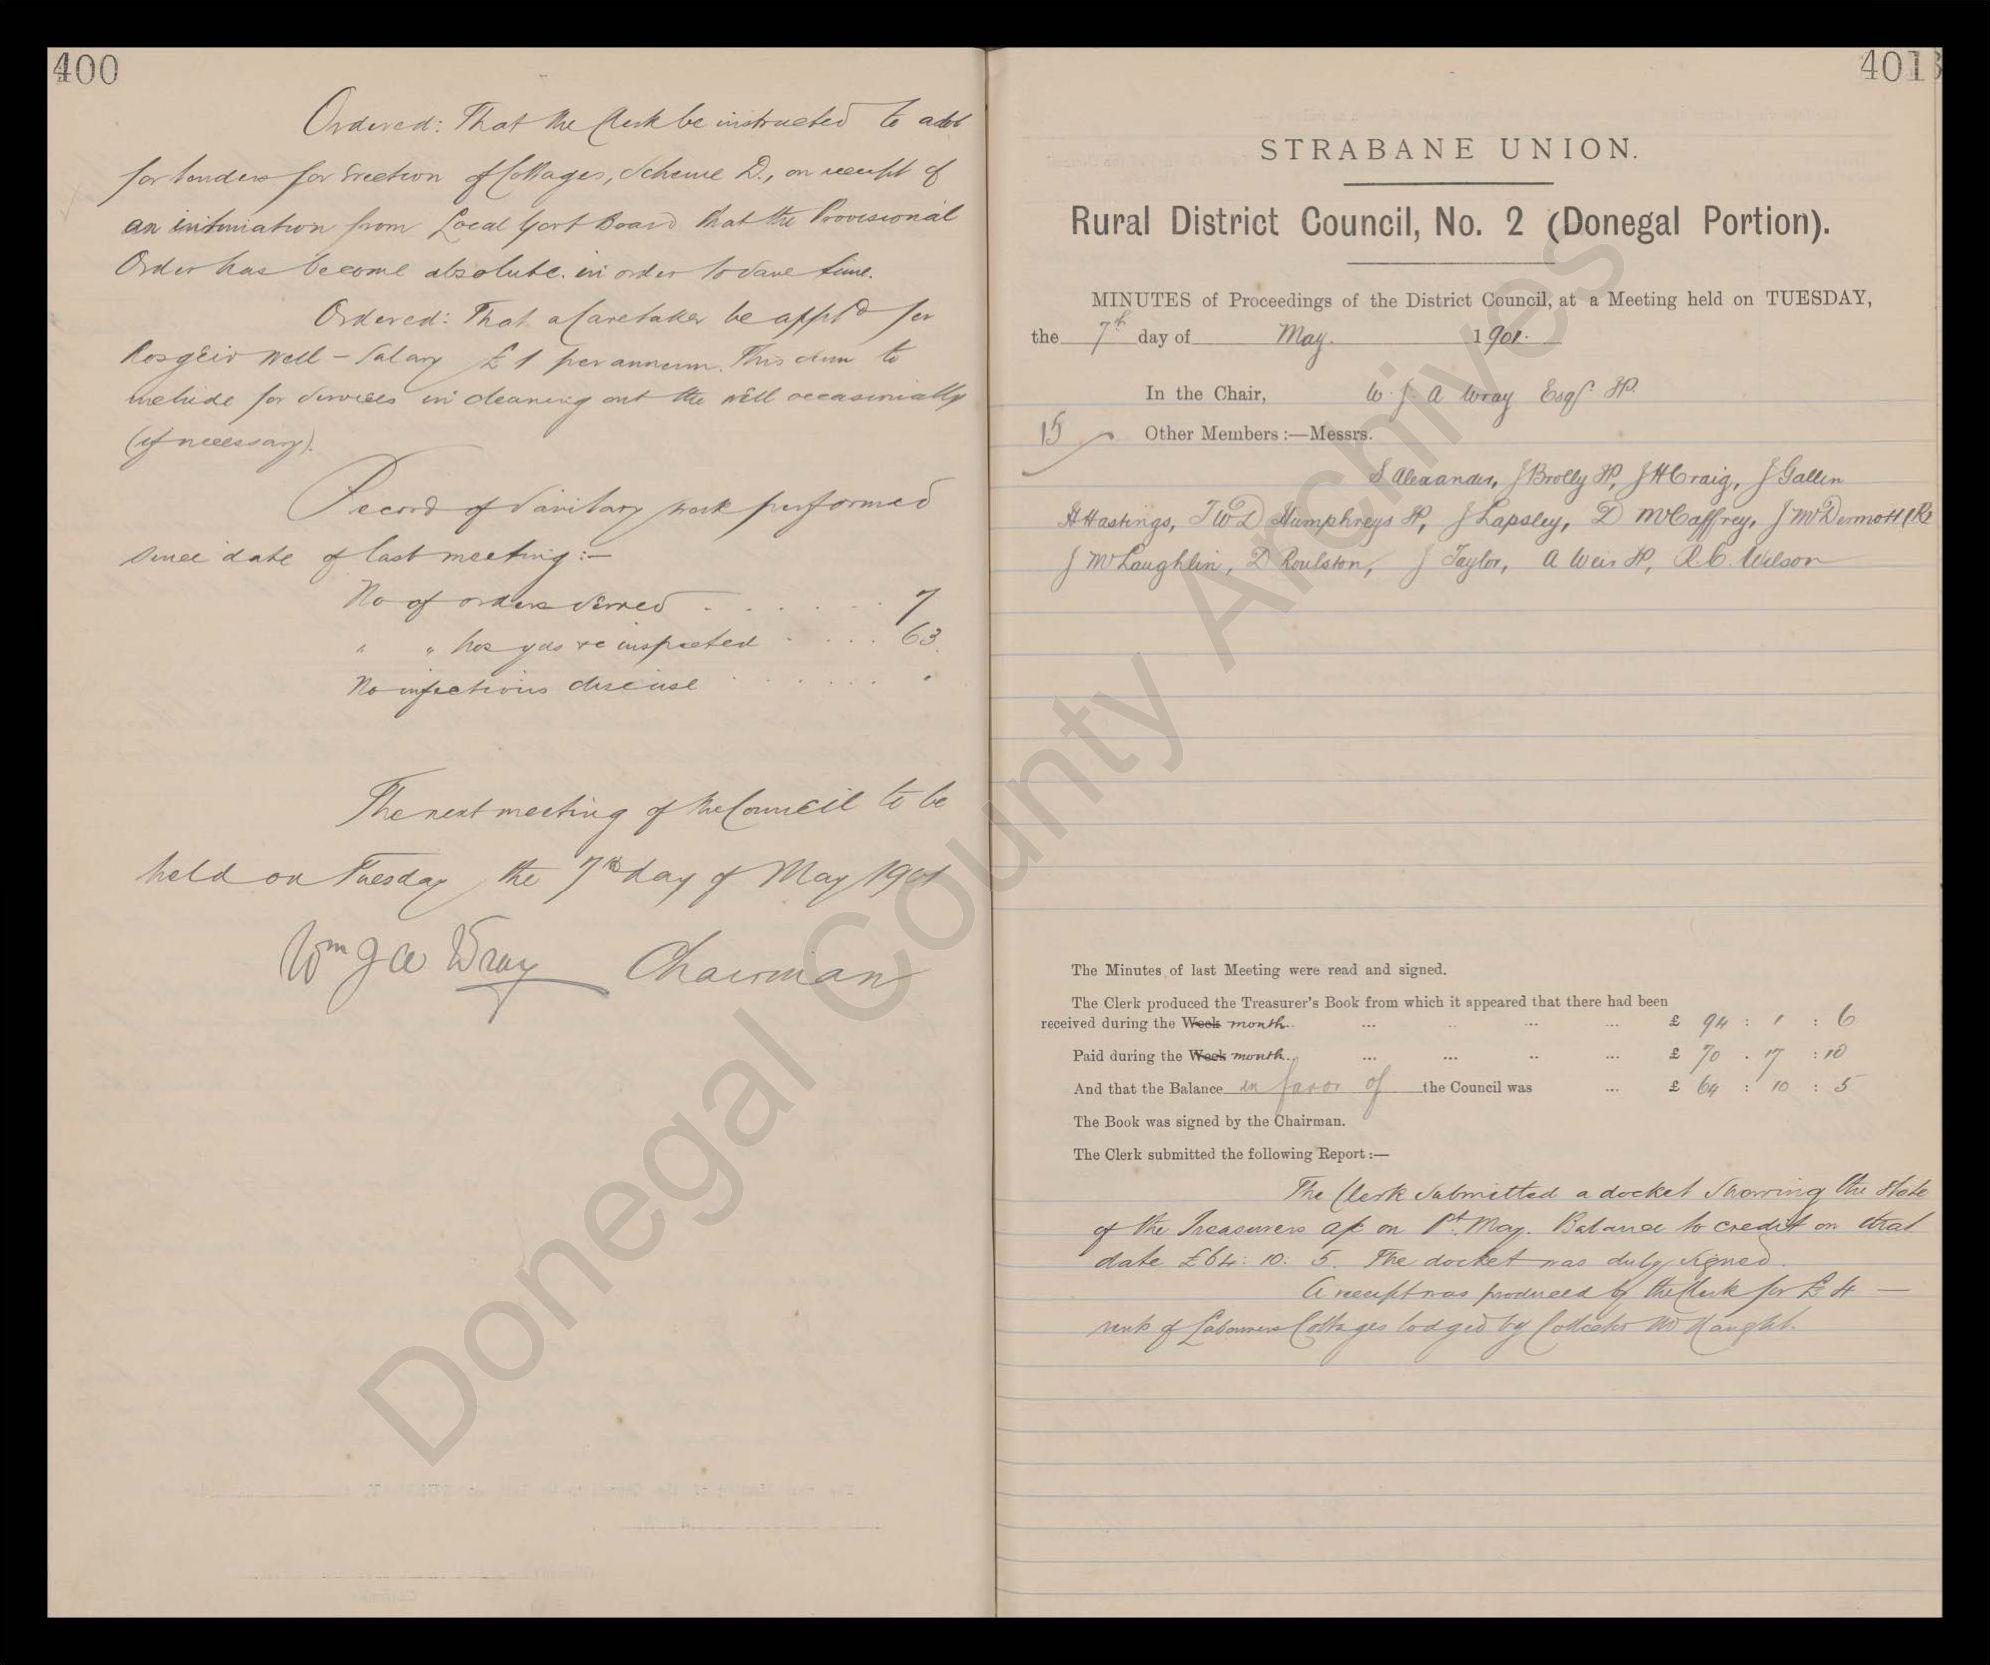 400
Ordered: That the Clerk be instructed to advt
for tenders for Erection of Cottages, Scheme D., on receipt of
an intimation from Local Govt Board that the Provisional
Order has become absolute. in order to save time.
Ordered: That a Caretaker be apptd for
Rosgeir Well – Salary £1 per annum. This sum to
include for services in cleaning out the well occasionally
(if necessary).
Record of Sanitary work performed
since date of last meeting:–
No of orders served . . . . . . . 7
" " hos yds re inspected . . . . 63.
No infectious disease . . . . . . . "
The next meeting of the Council to be
held on Tuesday the 7th day of May 1901
Wm J A Wray Chairman
401
STRABANE UNION.
Rural District Council, No. 2 (Donegal Portion).
MINUTES of Proceedings of the District Council, at a Meeting held on TUESDAY,
the 7th day of May. 1901.
In the Chair, W. J. A Wray Esqr JP.
15 Other Members :—Messrs.
S Alexander, J Brolly JP, J H Craig, J Gallen
H Hastings, T W D Humphreys JP, J Lapsley, D McCaffrey, J McDermott
J McLaughlin, D Roulston, J Taylor, A Weir JP, R. C. Wilson
The Minutes of last Meeting were read and signed.
The Clerk produced the Treasurer's Book from which it appeared that there had been
received during the Week month. ... ... ... ... £ 94 : 1 : 6
Paid during the Week month. ... ... ... ... £ 70 . 17 : 10
And that the Balance in favor of the Council was ... £ 64 : 10 : 5
The Book was signed by the Chairman.
The Clerk submitted the following Report :—
The Clerk submitted a docket showing the state
of the Treasurers a/c on 1st May. Balance to credit on that
date £64: 10: 5. The docket was duly signed.
A receipt was produced by the Clerk for £4 —
rents of Labourers Cottages lodged by Collector McNaught.
Donegal County Archives